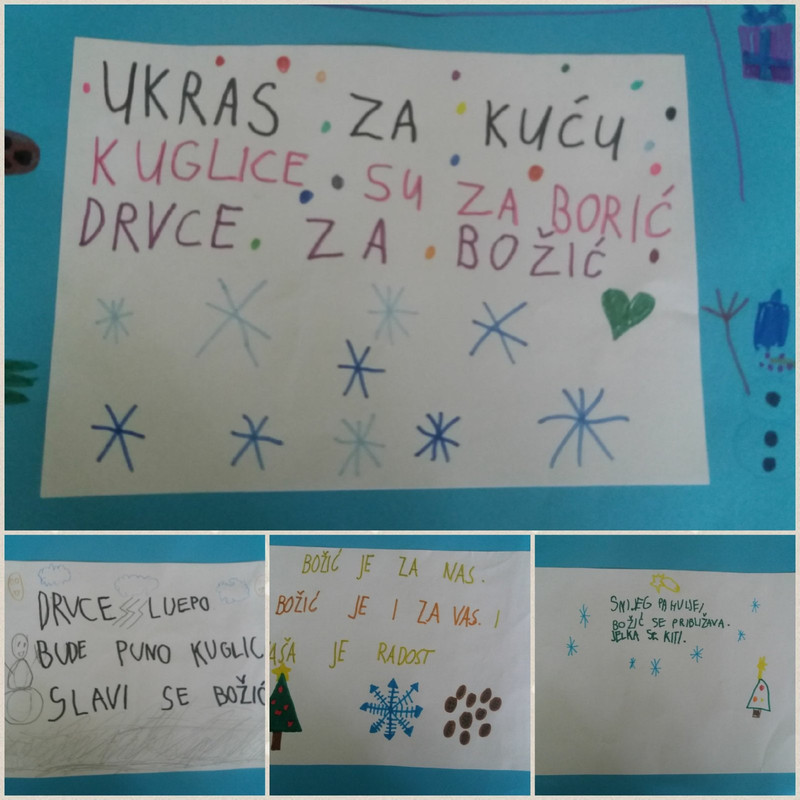 UKRAS ZA KUĆU
KUGLICE SU ZA BORIĆ
DRVCE ZA BOŽIĆ
DRVCE LIJEPO
BUDE PUNO KUGLIC
SLAVI SE BOŽIĆ
BOŽIĆ JE ZA NAS.
BOŽIĆ JE I ZA VAS. I
AŠA JE RADOST
SNIJEG PAHULJE,
BOŽIĆ SE PRIBLIŽAVA.
JELKA SE KITI.